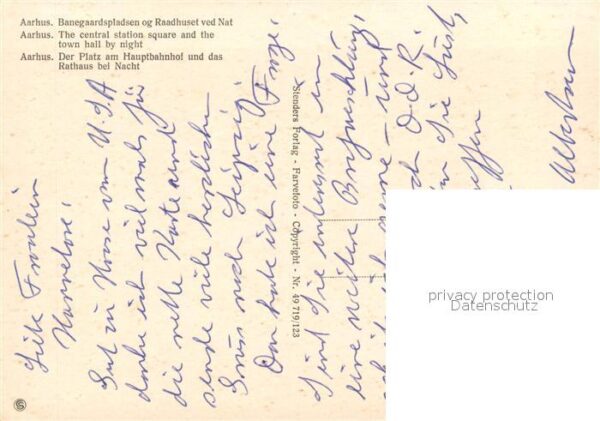 Aarhus. Banegaardspladsen og Raadhuset ved Nat
Aarhus. The central station square and the
town hall by night
Aarhus. Der Platz am Hauptbahnhof und das
Rathaus bei Nacht
Stenders Forlag - Farvefoto - Copyright - Nr. 49 719/123
Liebe Fräulein
Hannelore,
Gut zu Hause von U.S.A
danke ich vielmals für
die nette Karte und
sende viele herzliche
Gruss nach Leipzig.
Dan habe ich eine Frage:
Sind Sie interessiert in
eine weitere
D.D.R.
Sie Lust,
privacy protection
Datenschutz